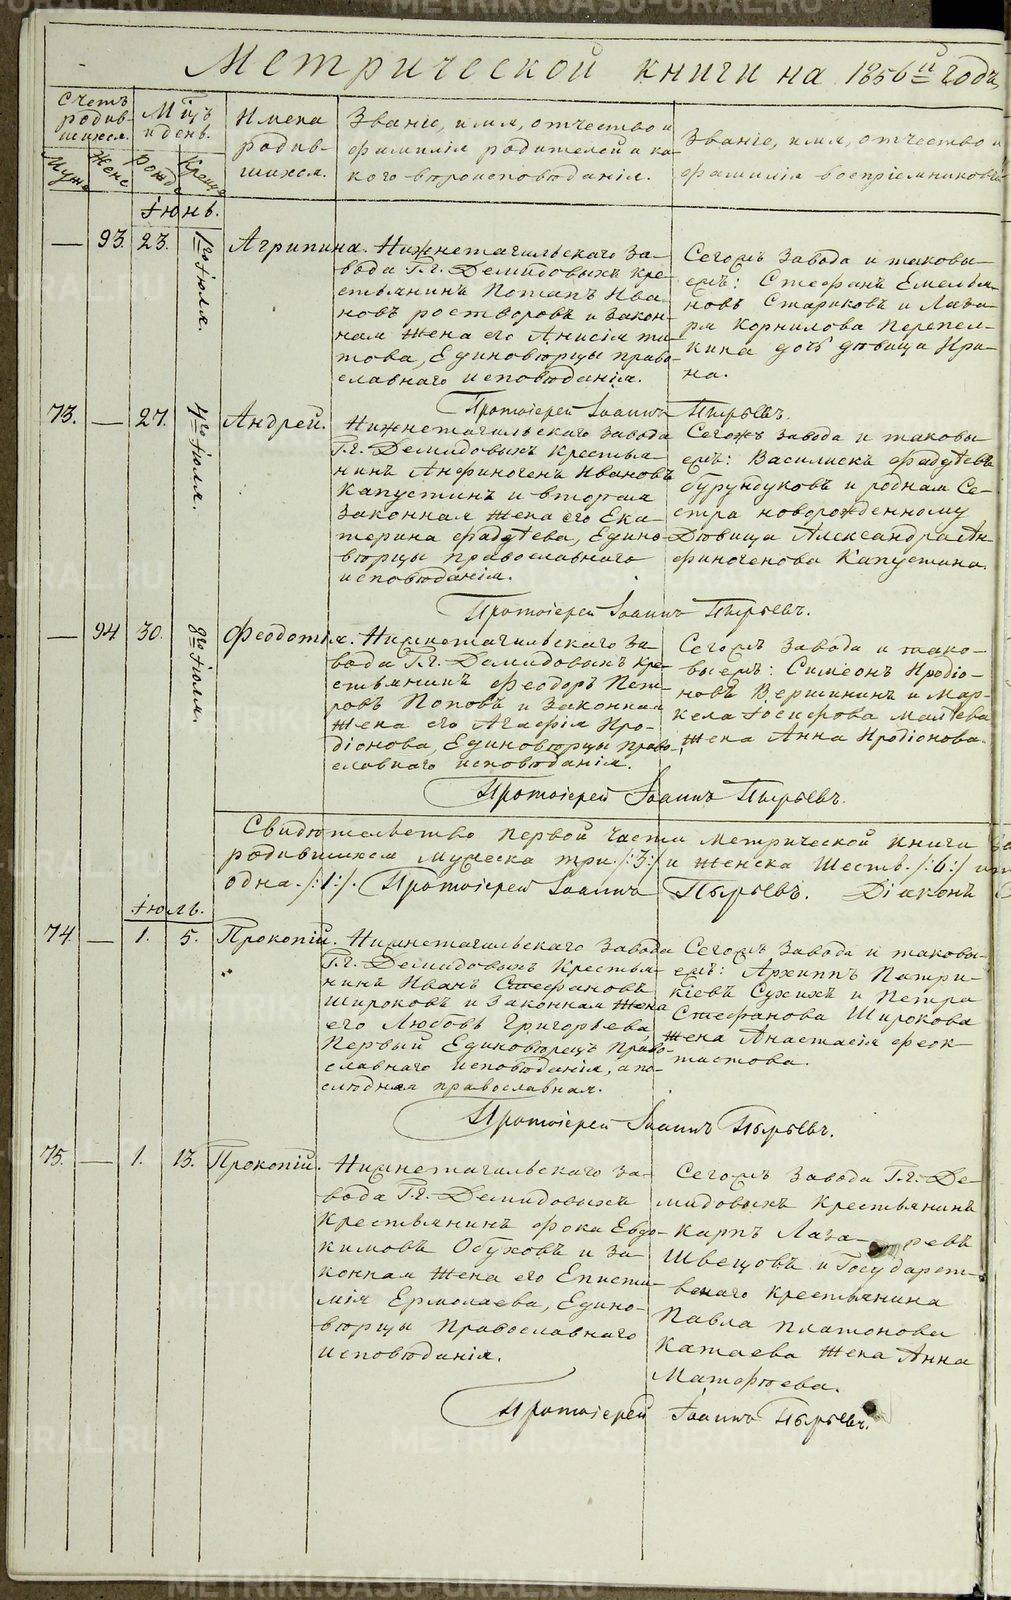 Метрической книги на 1856й годъ
Счетъ родив-шихся.
Мужс
Женс
Мцъ и день.
Рожд
Крещ
Имена родив-шихся.
Званіе, имя, отчество и
фамилія родителей и ка-
кого вѣроисповѣданія.
Званіе, имя, отчество и
фамилія воспріемниковъ
Іюнь.
— 93. 23. 1го Іюля. Агрипина.
Нижнетагильскаго за-
вода Г.г. Демидовыхъ кре-
стьянинъ Потапъ Ива-
новъ ростворовъ и закон-
ная жена его Анисія ти-
това, Единовѣрцы право-
славнаго исповѣданія.
Сегожъ завода и таковы-
ежъ: Стефанъ Емелья-
новъ Стариковъ и Лаза-
ря Корнилова Перепел-
кина дочь дѣвица Ири-
на.
Протоіерей Іоаннъ Пырьевъ.
73. — 27. 4го Іюля. Андрей.
Нижнетагильскаго завода
Г.г. Демидовыхъ крестья-
нинъ Анфиногенъ Ивановъ
Капустинъ и вторая
законная жена его Ека-
терина фадѣева, Едино-
вѣрцы православнаго
исповѣданія.
Сегожъ завода и таковы
ежъ: Василискъ фадѣевъ
бурундуковъ и родная Се-
стра новорожденному
Дѣвица Александра Ан
финогенова Капустина.
Протоіерей Іоаннъ Пырьевъ.
— 94 30. 9го Іюля. Феодотія.
Нижнетагильскаго за-
вода Г.г. Демидовыхъ кре-
стьянинъ Феодоръ Пет-
ровъ Поповъ и законная
жена его Агафія Иро-
діонова, Единовѣрцы право-
славнаго исповѣданія.
Сегожъ завода и тако-
выежъ: Симеонъ Иродіо-
новъ Вершининъ и Мар-
кела Іосифова Малѣева
жена Анна Иродіонова.
Протоіерей Іоаннъ Пырьевъ.
Свидѣтельство первой части метрической книги
родившихся мужеска три /:3:/ и женска шесть /:6:/
одна /:1:/. Протоіерей Іоаннъ Пырьевъ. Діаконъ
Іюль.
74. — 1. 5. Прокопій.
Нижнетагильскаго завода
Г.г. Демидовыхъ крестья-
нинъ Иванъ Стефановъ
Широковъ и законная жена
его Любовь Григорьева,
Первый Единовѣрецъ право-
славнаго исповѣданія, а по-
слѣдняя православная.
Сегожъ завода и таковы-
ежъ: Архиппъ Патри-
кіевъ Сухихъ и Петра
Стефанова Широкова
жена Анастасія феок-
тистова.
Протоіерей Іоаннъ Пырьевъ.
75. — 1. 13. Прокопій.
Нижнетагильскаго за-
вода Г.г. Демидовыхъ
крестьянинъ фока Евдо-
кимовъ Обуховъ и за-
конная жена его Еписти-
мія Ермолаева, Едино-
вѣрцы православнаго
исповѣданія.
Сегожъ завода Г.г. Де-
мидовыхъ крестьянинъ
карпъ Лаза- ревъ
Швецовъ и Государст-
веннаго крестьянина
Павла платонова
Катаева жена Анна
Матфѣева.
Протоіерей Іоаннъ Пырьевъ.
METRIKI.GASO-URAL.RU